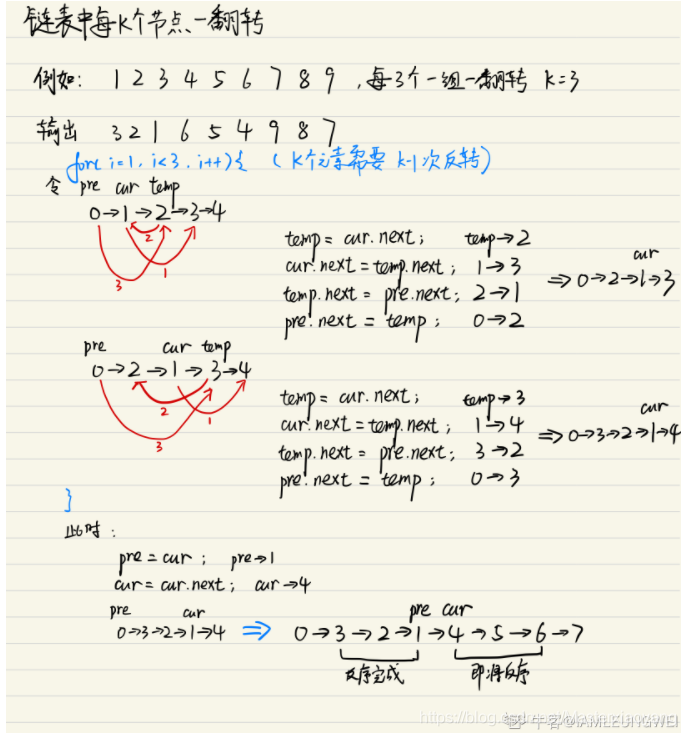 链表中每K个节点一翻转
例如: 1 2 3 4 5 6 7 8 9 ,每3个一组一翻转 K=3
输出 3 2 1 6 5 4 9 8 7
for(i=1, i<3, i++){ (K个元素需要 k-1次反转)
令 pre cur temp
0→1→2→3→4
2
1
3
temp = cur.next; temp→2
cur.next = temp.next; 1→3
temp.next = pre.next; 2→1
pre.next = temp; 0→2
cur
⇒ 0→2→1→3
pre cur temp
0→2→1→3→4
2
1
3
temp = cur.next; temp→3
cur.next = temp.next; 1→4
temp.next = pre.next; 3→2
pre.next = temp; 0→3
cur
⇒ 0→3→2→1→4
}
此时:
pre = cur; pre→1
cur = cur.next; cur→4
pre cur
0→3→2→1→4 ⇒
pre cur
0→3→2→1→4→5→6→7
反序完成 即将反序
https://blog.
牛客@IAMLEUNGWEI